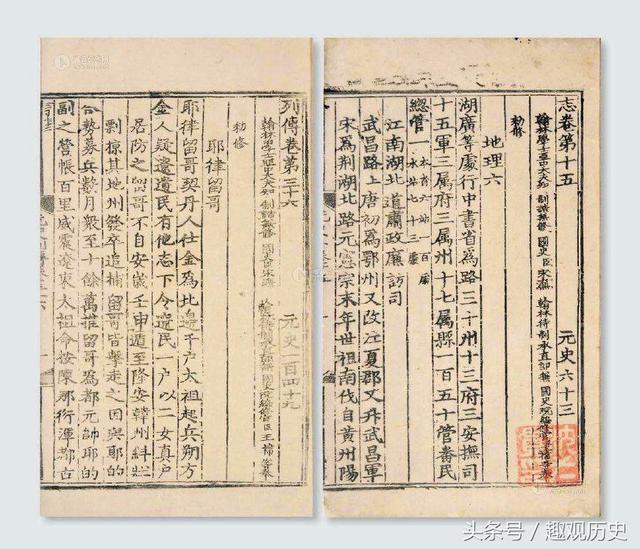 志卷第十五 元史六十三
翰林學士亞中大夫知 制誥兼脩 國史臣宋濂 翰林待制承直郎兼 國史院編脩官臣王禕等奉
勑修
地理六
湖廣等處行中書省爲路三十州十三府三安撫司
十五軍三屬府三屬州十七屬縣一百五十管番民
總管一
江南湖北道肅政廉訪司
武昌路上唐初爲鄂州又改江夏郡又升武昌軍
宋爲荆湖北路元憲宗末年世祖南伐自黄州陽
列傳卷第三十六 元史一百四十九
翰林學士亞中大夫知 制誥兼脩 國史臣宋濂 翰林待制承直郎兼 國史院編脩官臣王禕等奉
勑修
耶律留哥
耶律留哥契丹人仕金爲北邊千户太祖起兵朔方
金人疑遼遺民有他志下令遼民一户以二女真户
夾防之留哥不自安歲壬申遁至隆安韓州糾壯
剽掠其地州發卒追捕留哥皆擊走之因與耶的
合勢募兵數月衆至十餘萬推留哥爲都元帥耶的
副之營帳百里威震遼東太祖命按陳那衍渾都古
头条号 / 趣观历史